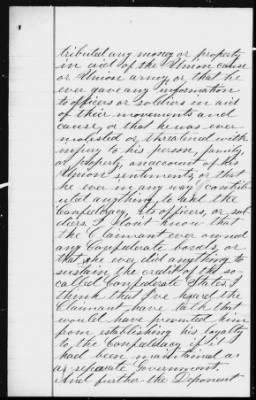 tributed any money or property
in aid of the Union cause
or Union army, or that he
ever gave any information
to officers or soldiers in aid
of their movements and
cause, or that he was ever
molested or threatened with
injury to his person, family,
or property, on account of his
Union sentiments, or that
he ever in any way contrib
uted anything to aid the
Confederacy, its officers, or sol
diers. I don't know that
the Claimant ever owned
any Confederate bonds, or
that he ever did anything to
sustain the credit of the so-
called Confederate States. I
think that I've heard the
Claimant have talk that
would have prevented him
from establishing his loyalty
to the Confederacy if it
had been maintained as
a separate Government.
And further the Deponent